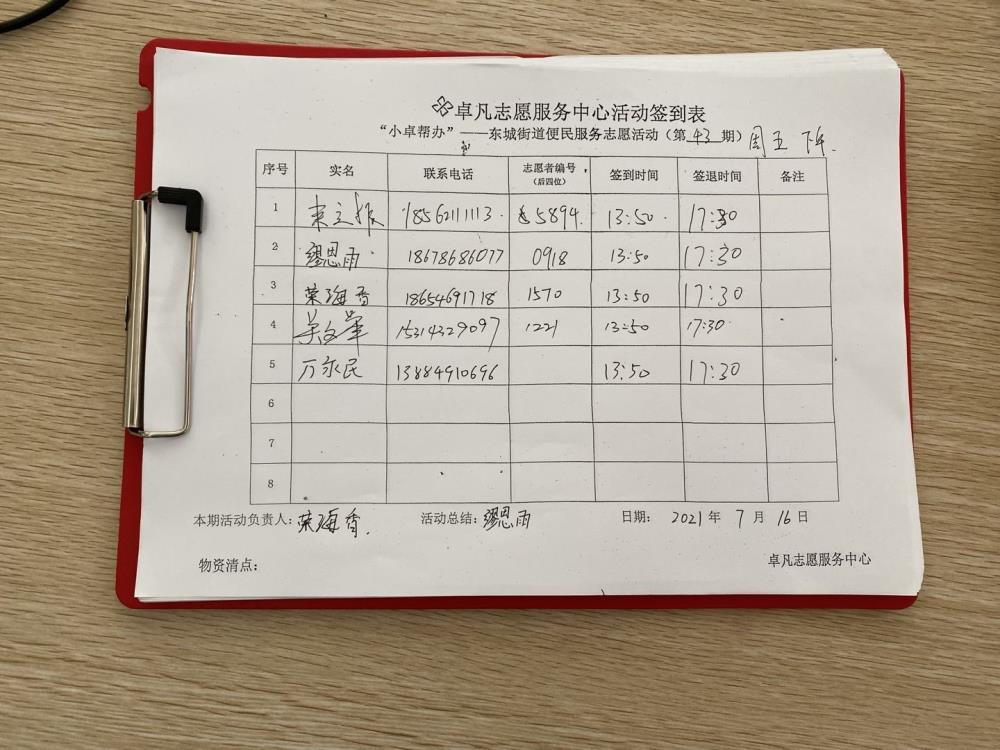 卓凡志愿服务中心活动签到表
“小卓帮办”——东城街道便民服务志愿活动（第 43 期）周五 下午.
序号 实名 联系电话 志愿者编号（后四位） 签到时间 签退时间 备注
1 18562111113 5894 13:50 17:30
2 缪恩雨 18678686077 0918 13:50 17:30
3 荣海香 18654691718 1570 13:50 17:30
4 15314329097 1221 13:50 17:30
5 万永民 13884910696 13:50 17:30
6
7
8
本期活动负责人：荣海香. 活动总结：缪恩雨 日期： 2021 年 7 月 16 日
物资清点： 卓凡志愿服务中心